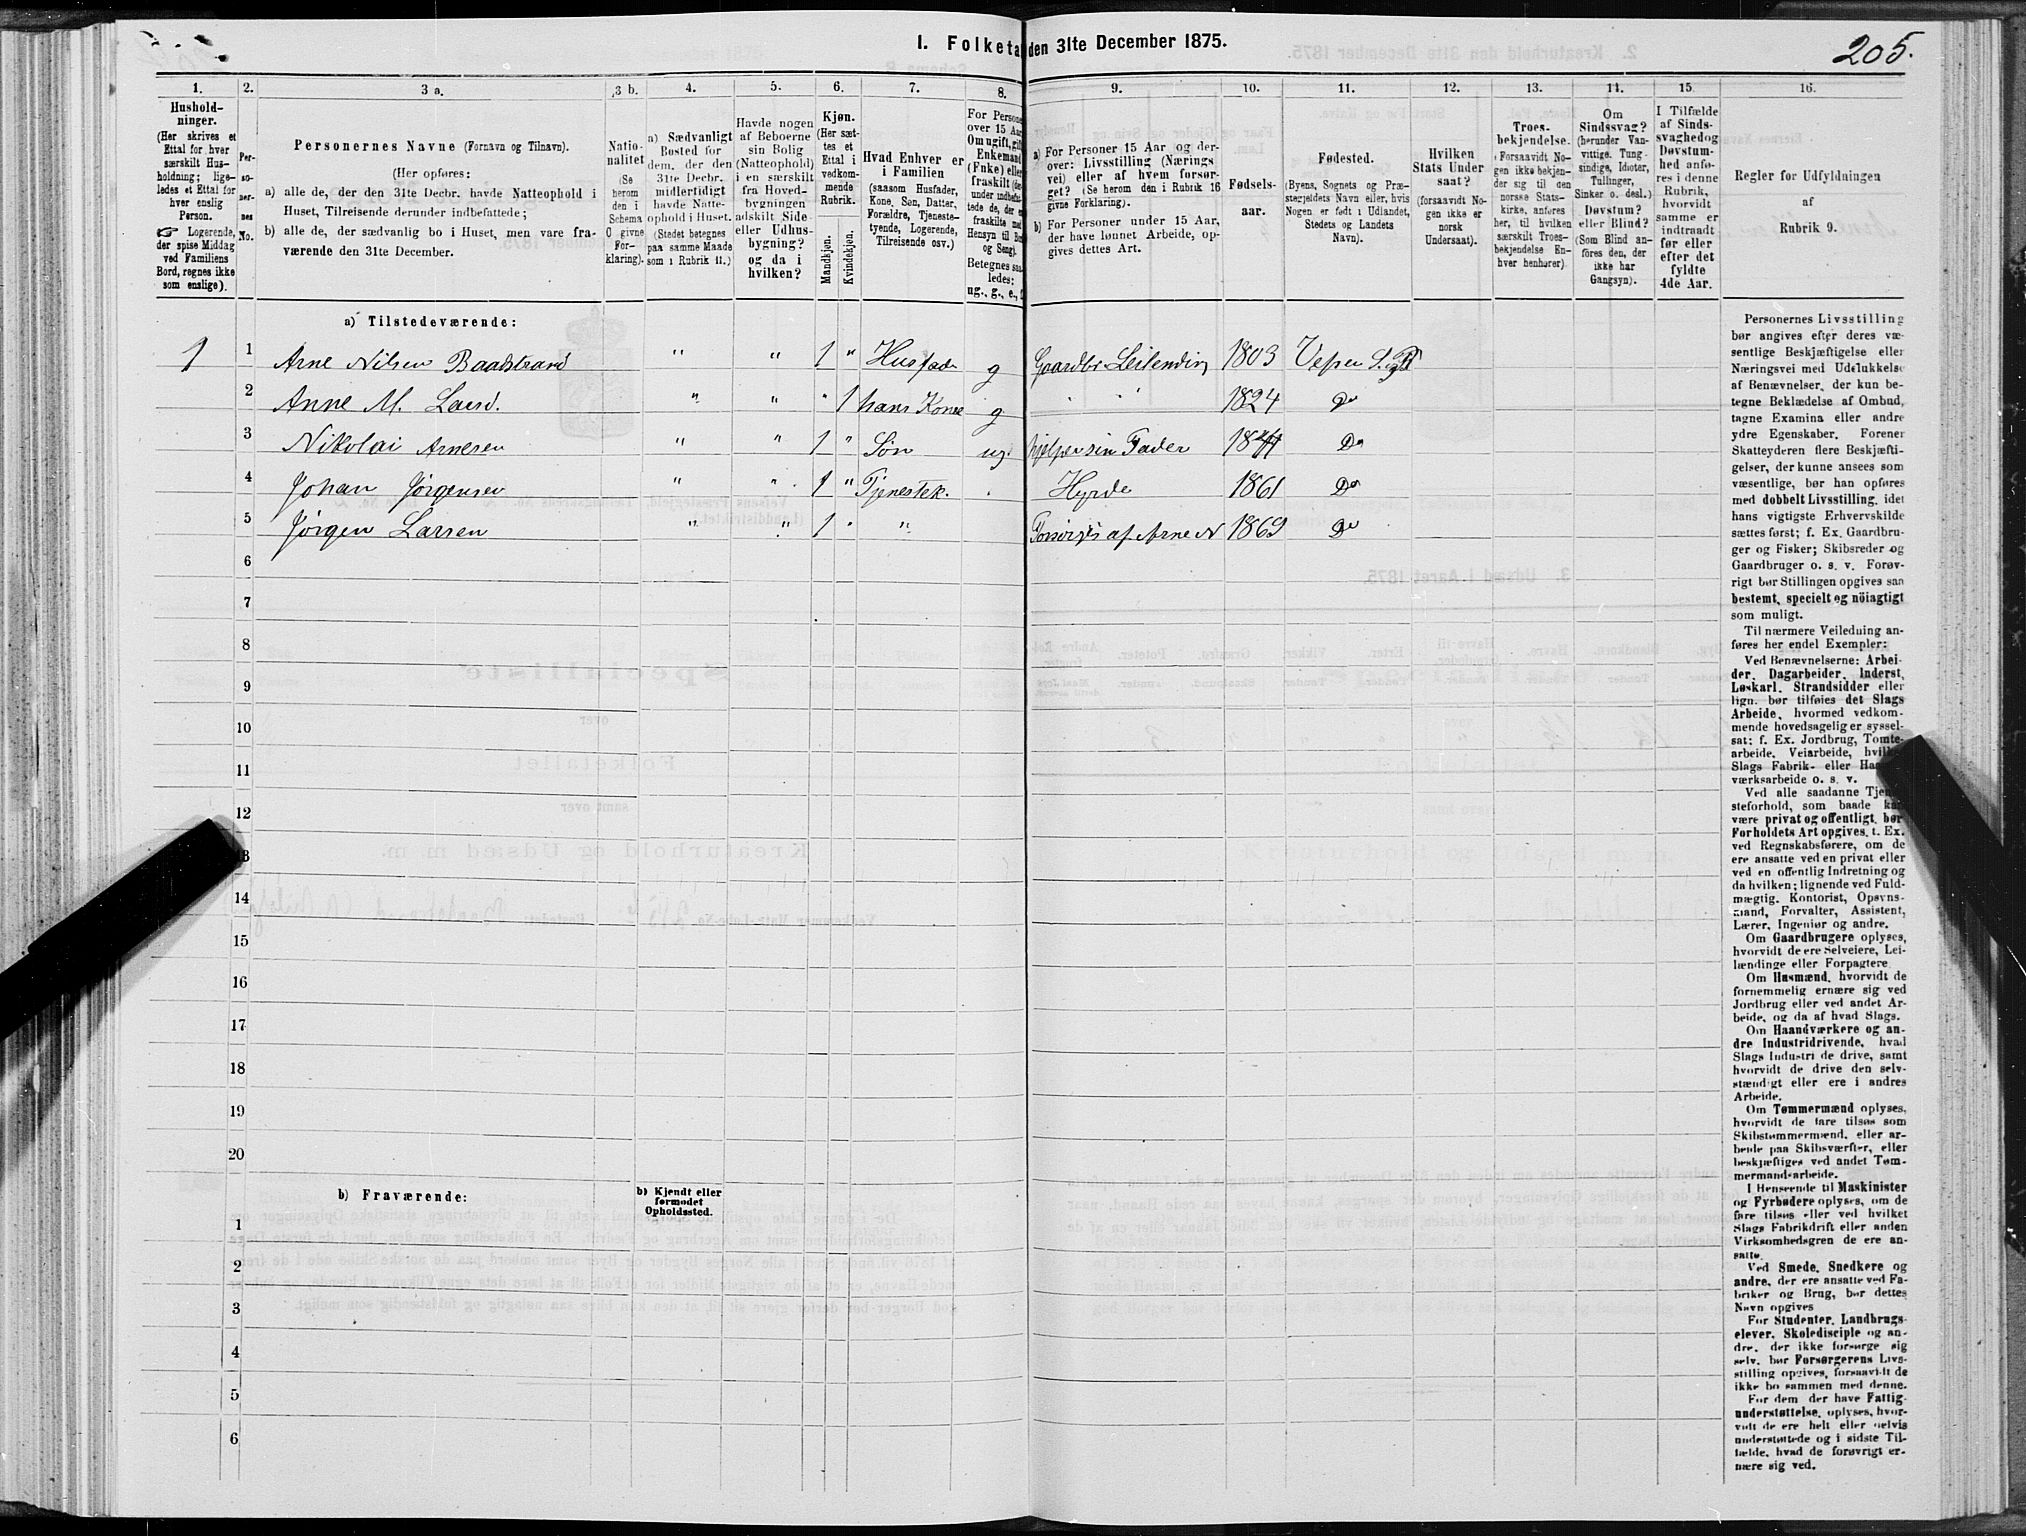 205.
I. Folketal den 31te December 1875.
1. 2. 3 a. 3 b. 4. 5. 6. 7. 8. 9. 10. 11. 12. 13. 14. 15. 16.
Hushold-
ninger.
(Her skrives et
Ettal for hver
særskilt Hus-
holdning; lige-
ledes et Ettal for
hver enslig
Person.
☞ Logerende,
der spise Middag
ved Familiens
Bord, regnes ikke
som enslige).
Per-
so-
ner-
nes
No.
Personernes Navne (Fornavn og Tilnavn).
(Her opføres:
a) alle de, der den 31te Decbr. havde Natteophold i
Huset, Tilreisende derunder indbefattede;
b) alle de, der sædvanlig bo i Huset, men vare fra-
værende den 31te December.
Natio-
nalitet
(Se
herom
den i
Schema
O givne
For-
klaring).
a) Sædvanligt
Bosted for
dem, der den
31te Decbr.
midlertidigt
havde Natte-
ophold i Huset.
(Stedet betegnes
paa samme Maade
som i Rubrik 11.)
Havde nogen
af Beboerne
sin Bolig
(Natteophold)
i en særskilt
fra Hoved-
bygningen
adskilt Side-
eller Udhus-
bygning?
og da i
hvilken?
Kjøn.
(Her sæt-
tes et
Ettal i
vedkom-
mende
Rubrik.
Mandkjøn.
Kvindekjøn.
Hvad Enhver er
i Familien
(saasom Husfader,
Kone, Søn, Datter,
Forældre, Tjeneste-
tyende, Logerende,
Tilreisende osv.)
For Persone
over 15 Aar
Om ugift, gift
Enkemand
(Fnke) eller
fraskilt
Betegnes saa
ledes:
ug., g., e.,
a) For Personer 15 Aar og der-
over: Livsstilling (Nærings
vei) eller af hvem forsør-
get? (Se herom den i Rubrik 16
givne Forklaring).
b) For Personer under 15 Aar,
der have lønnet Arbeide, op-
gives dettes Art.
Fødsels-
aar.
Fødested.
(Byens, Sognets og Præ-
stegjeldets Navn eller, hvis
Nogen er født i Udlandet,
Stedets og Landets
Navn).
Hvilken
Stats Under
saat?
(forsaavidt No-
gen ikke er
norsk
Undersaat).
Troes-
bekjendelse.
(Forsaavidt No-
gen ikke bekjen-
der sig til den
norske Stats-
kirke, anføres
her, til hvilken
særskilt Troes-
bekjendelse En-
hver henhører).
Om
Sindssvag?
(herunder Van-
vittige, Tung-
sindige, Idioter,
Tullinger,
Sinker o. desl.)
Døvstum?
eller Blind?
(Som Blind an-
føres den, der
ikke har
Gangsyn).
I Tilfælde
af Sinds-
svaghed og
Døvstum-
hed anfø-
res i denne
Rubrik,
hvorvidt
samme er
indtraadt
før eller
efter det
fyldte
4de Aar.
Regler for Udfyldningen
af
Rubrik 9.
a) Tilstedeværende:
1 1 Arne Nilsen Baadstrand " " 1 " Husfader g Gaardbr Leilending 1803
2 Anne M. Larsd. " " " 1 hans Kone g " " 1824 Do
3 Nikolai Arnesen " " 1 " Søn ug hjelper sin Fader Do
4 Johan Jørgensen " " 1 " Tjenestek. Hyrde 1861 Do
5 Jørgen Larsen " " 1 " " Forsørges af Arne N 1869 Do
6
7
8
9
10
11
12
13
14
15
16
17
18
19
20
b) Fraværende:
b) Kjendt eller
formodet
Opholdssted.
1
2
3
4
5
6
Personernes Livsstilling
bør angives efter deres væ-
sentlige Beskjæftigelse eller
Næringsvei med Udelukkelse
af Benævnelser, der kun be-
tegne Beklædelse af Ombud,
tagne Examina eller andre
ydre Egenskaber. Forener
Skatteyderen flere Beskjæfti-
gelser, der kunne ansees som
væsentlige, bør han opføres
med dobbelt Livsstilling, idet
hans vigtigste Erhvervskilde
sættes først; f. Ex. Gaardbru-
ger og Fisker; Skibsreder og
Gaardbruger o. s. v. Forøv-
rigt bør Stillingen opgives saa
bestemt, specielt og nöiagtigt
som muligt.
Til nærmere Veiledning an-
føres her endel Exempler:
Ved Benævnelserne: Arbei-
der, Dagarbeider, Inderst,
Løskarl, Strandsidder eller
lign. bør tilføies det Slags
Arbeide, hvormed vedkom-
mende hovedsagelig er syssel-
sat; f. Ex. Jordbrug, Tomte-
arbeide, Veiarbeide, hvilket
Slags Fabrik- eller Haand-
værksarbeide o. s. v.
Ved alle saadanne Tjene-
steforhold, som baade kan
være privat og offentligt, bør
Forholdets Art opgives, t. Ex.
ved Regnskabsførere, om de
ere ansatte ved en privat eller
ved en offentlig Indretning og
da hvilken; lignende ved Fuld-
mægtig, Kontorist, Opsyns-
mand, Forvalter, Assistent,
Lærer, Ingeniør og andre.
Om Gaardbrugere oplyses,
hvorvidt de ere Selveiere, Lei-
lændinge eller Forpagtere.
Om Husmænd, hvorvidt de
fornemmelig ernære sig ved
Jordbrug eller ved andet Ar-
beide, og da af hvad Slags.
Om Haandværkere og an-
dre Industridrivende, hvad
Slags Industri de drive, samt
hvorvidt de drive den selv-
stændigt eller ere i andres
Arbeide.
Om Tømmermænd oplyses,
hvorvidt de fare tilsøs som
Skibstømmermænd, eller ar-
beide paa Skibsværfter, eller
beskjæftiges ved andet Tøm-
mermandsarbeide.
I Henseende til Maskinister
og Fyrbødere oplyses, om de
fare tilsøs eller ved hvilket
Slags Fabrikdrift eller anden
Virksomhedsgren de ere an-
satte.
Ved Smede, Snedkere og
andre, der ere ansatte ved Fa-
briker og Brug, bør dettes
Navn opgives
For Studenter, Landbrugs-
elever, Skoledisciple og an-
dre, der ikke forsørge sig
selv, bør Forsørgerens Livs-
stilling opgives, forsaavidt de
ikke bo sammen med denne.
For dem, der have Fattig-
understøttelse, oplyses, hvor-
vidt de ere helt eller delvis
understøttede og i sidste Til-
fælde, hvad de forøvrigt er-
nære sig ved.